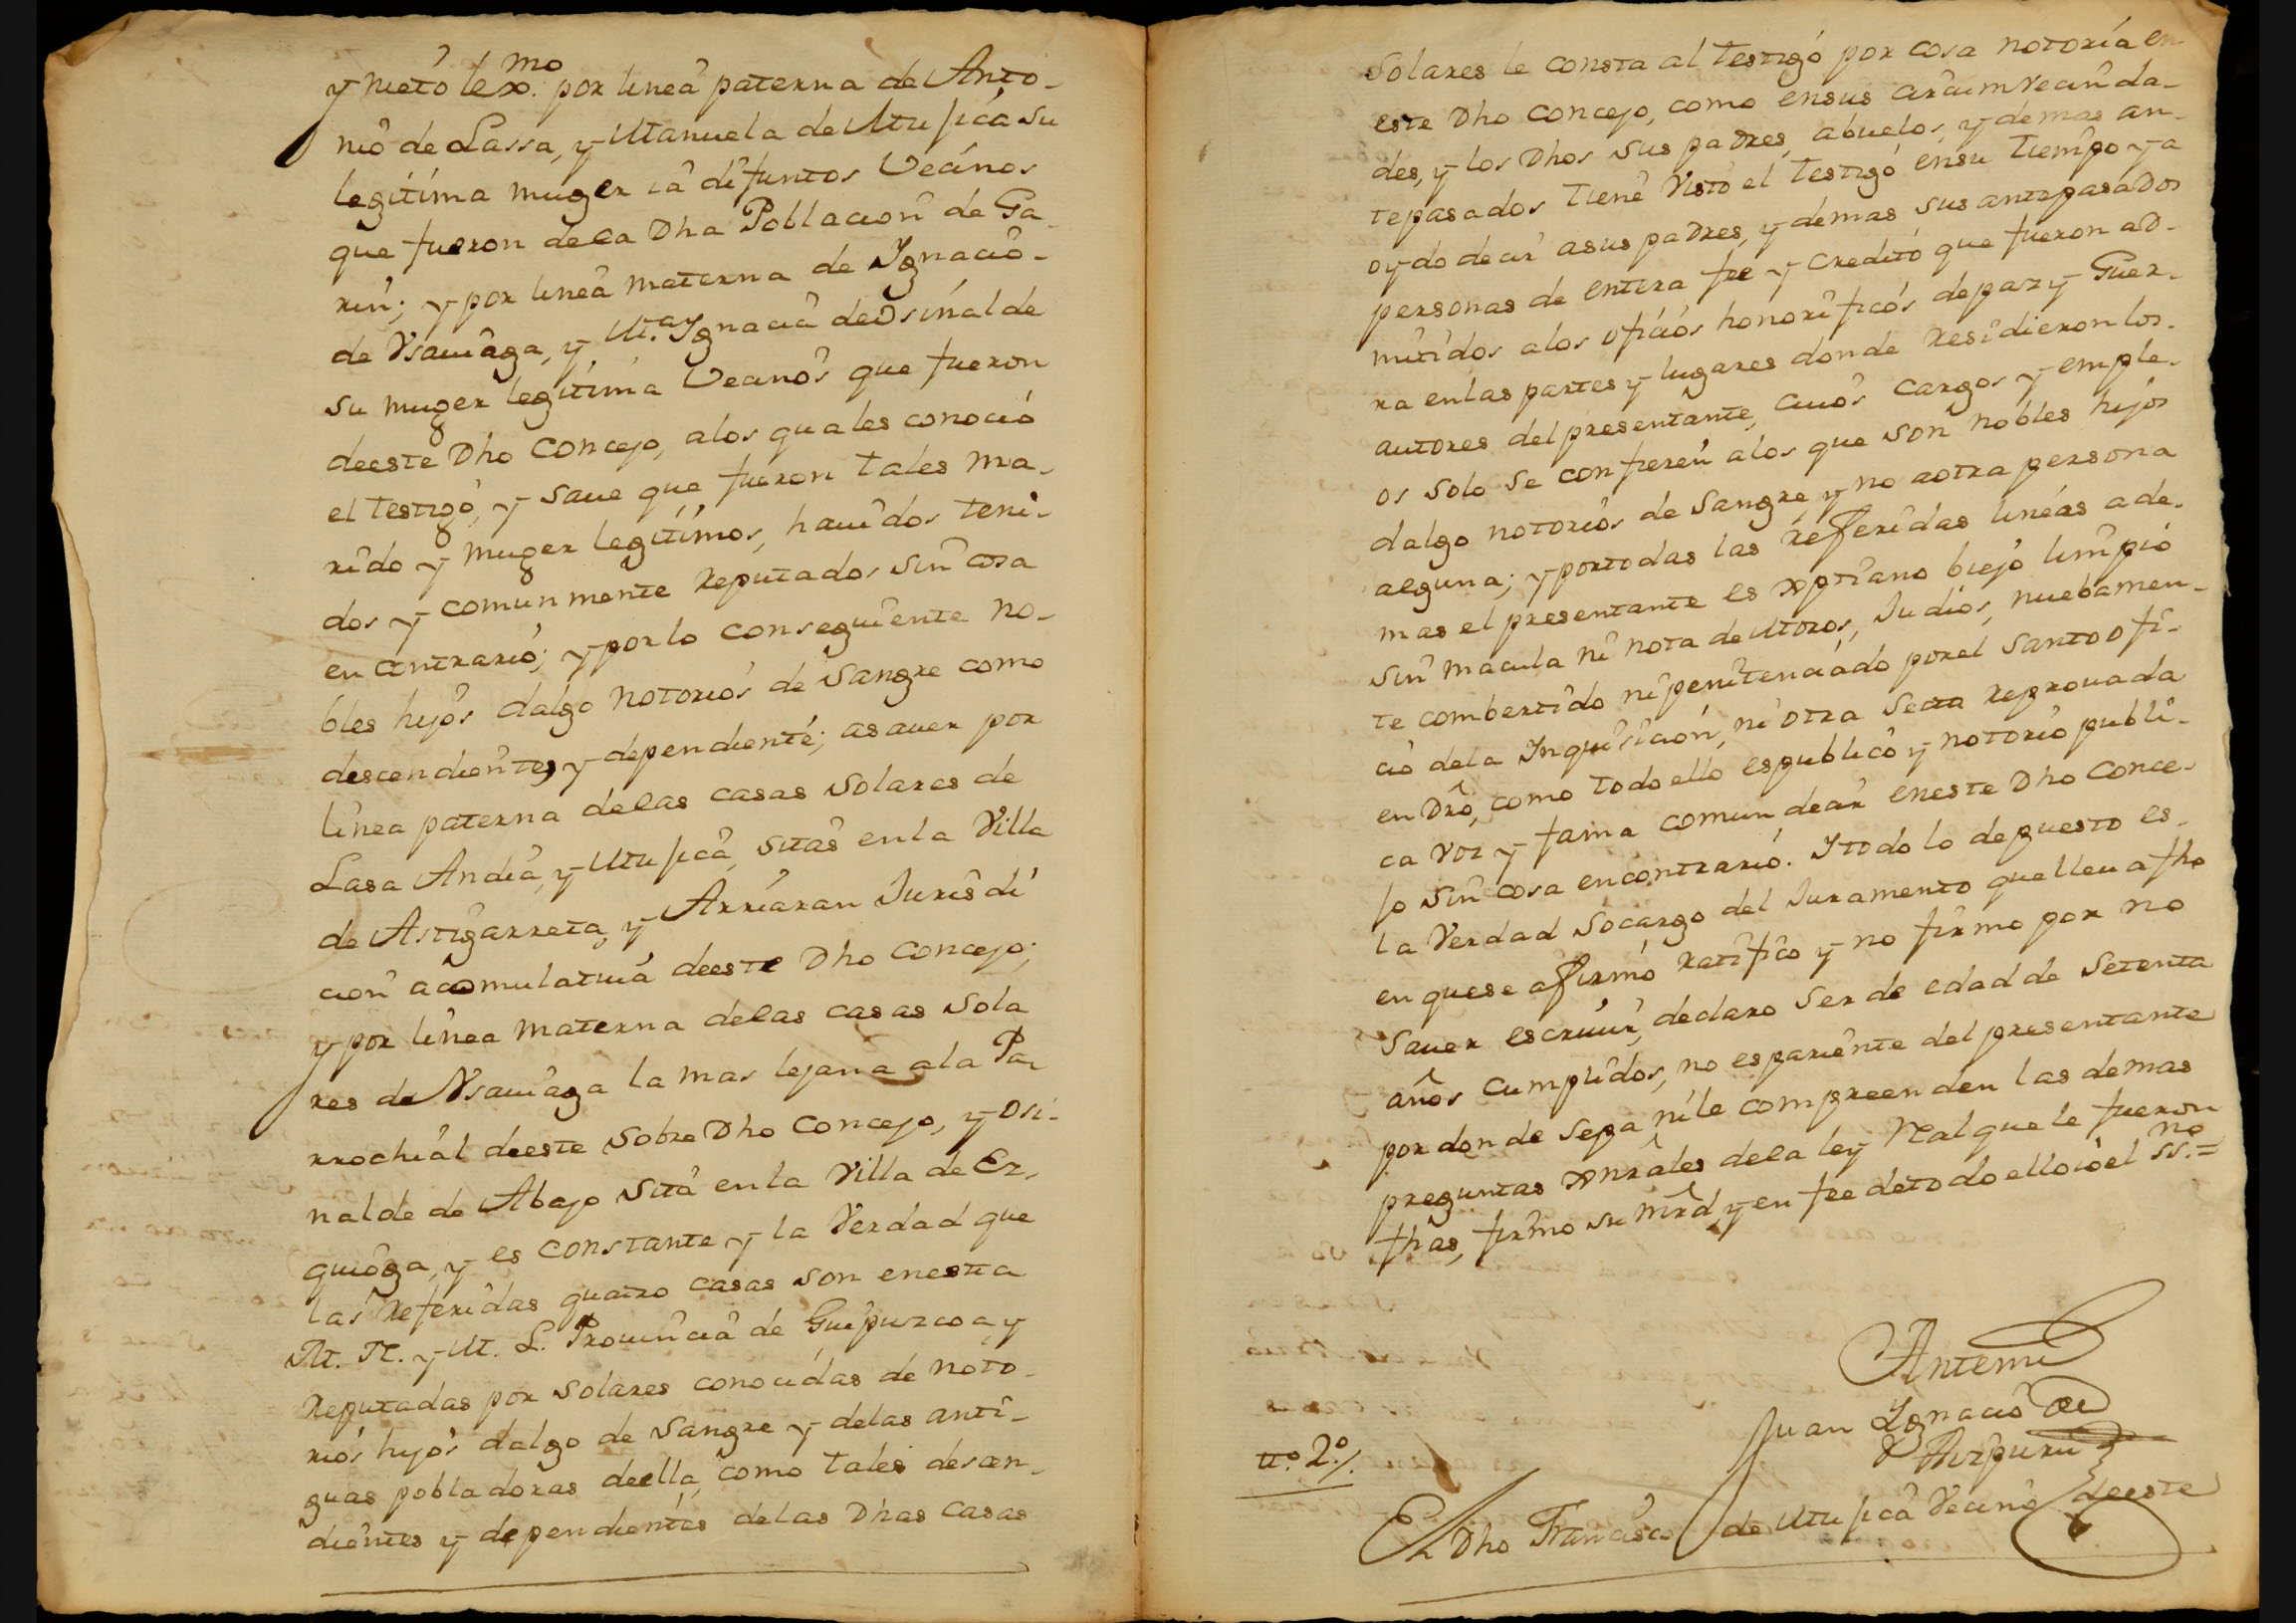 y nieto lexmo. por linea paterna de Anto-
nio de Lassa, y Manuela de Mujica su
legitima muger ia difuntos Vecinos
que fueron dela Dha Poblacion de Ga-
rin; y por linea materna de Ignacio-
de Ysauaga, y Ma. Ygnacia de Osinalde
su muger legitima Vecinos que fueron
deeste Dho Concejo, alos quales conocio
el testigo, y saue que fueron tales ma-
rido y muger legitimos, hauidos teni-
dos y comunmente Reputados sin cosa
en contrario; y por lo conseguiente no-
bles hijos dalgo notorios de sangre como
descendientes y dependiente; asauer por
linea paterna delas casas solares de
Lasa Andia, y Mujica, sitas en la Villa
de Astigarreta, y Arriaran Jurisdi
cion acomulatiua deeste Dho Concejo;
y por linea materna delas casas sola
res de Ysauaga la mas lejana a la Pa-
rrochial deeste sobre Dho Concejo, y Osi-
nalde de Abajo sita en la Villa de Ez-
quioga, y es constante y la Verdad que
las Referidas quatro casas son enesta
M. N. y M. L. Prouincia de Guipuzcoa y
Reputadas por solares conocidas de noto-
rios hijos dalgo de sangre y delas anti-
guas pobladoras deella, como tales desen-
dientes y dependientes delas Dhas casas
Solares le consta al testigo por cosa notoria en
este Dho Concejo, como ensus circumvecinda-
des, y los Dhos sus padres, abuelos, y demas an-
tepasados tiene Visto el testigo ensu tiempo y a
oydo decir asus padres, y demas sus antepasados
personas de entera fee y credito que fueron ad-
mitidos alos oficios honorificos depaz y Guer-
ra enlas partes y lugares donde Residieron los-
autores del presentante, cuios cargos y emple-
os solo se confieren alos que son nobles hijos
dalgo notorios de sangre, y no aotra persona
alguna; y portodas las Referidas lineas ade-
mas el presentante es xptiano biejo limpio
sin macula ni nota de Moros, Judios, nuebamen-
te combertido ni penitenciado porel santo ofi-
cio dela Inquisicion, ni otra secta Reprouada
en Dro, como todo ello espublico y notorio publi-
ca voz y fama comun decir eneste Dho Conce-
jo sin cosa encontrario. Y todo lo depuesto es-
la Verdad socargo del Juramento que lleua fho
en quese afirmo ratifico y no firmo por no
sauer escriuir, declaro ser de edad de setenta
años cumplidos, no espariente del presentante
por donde sepa nile compreenden las demas
preguntas xnrales dela ley Real que le fueron
fhas, firmo su mrd, y en fee detodo ello io el ssno.=
Antemi
Juan Ygnacio de
Aizpuru
no. 2o./.
El Dho Francisco de Mujica Vecino deeste